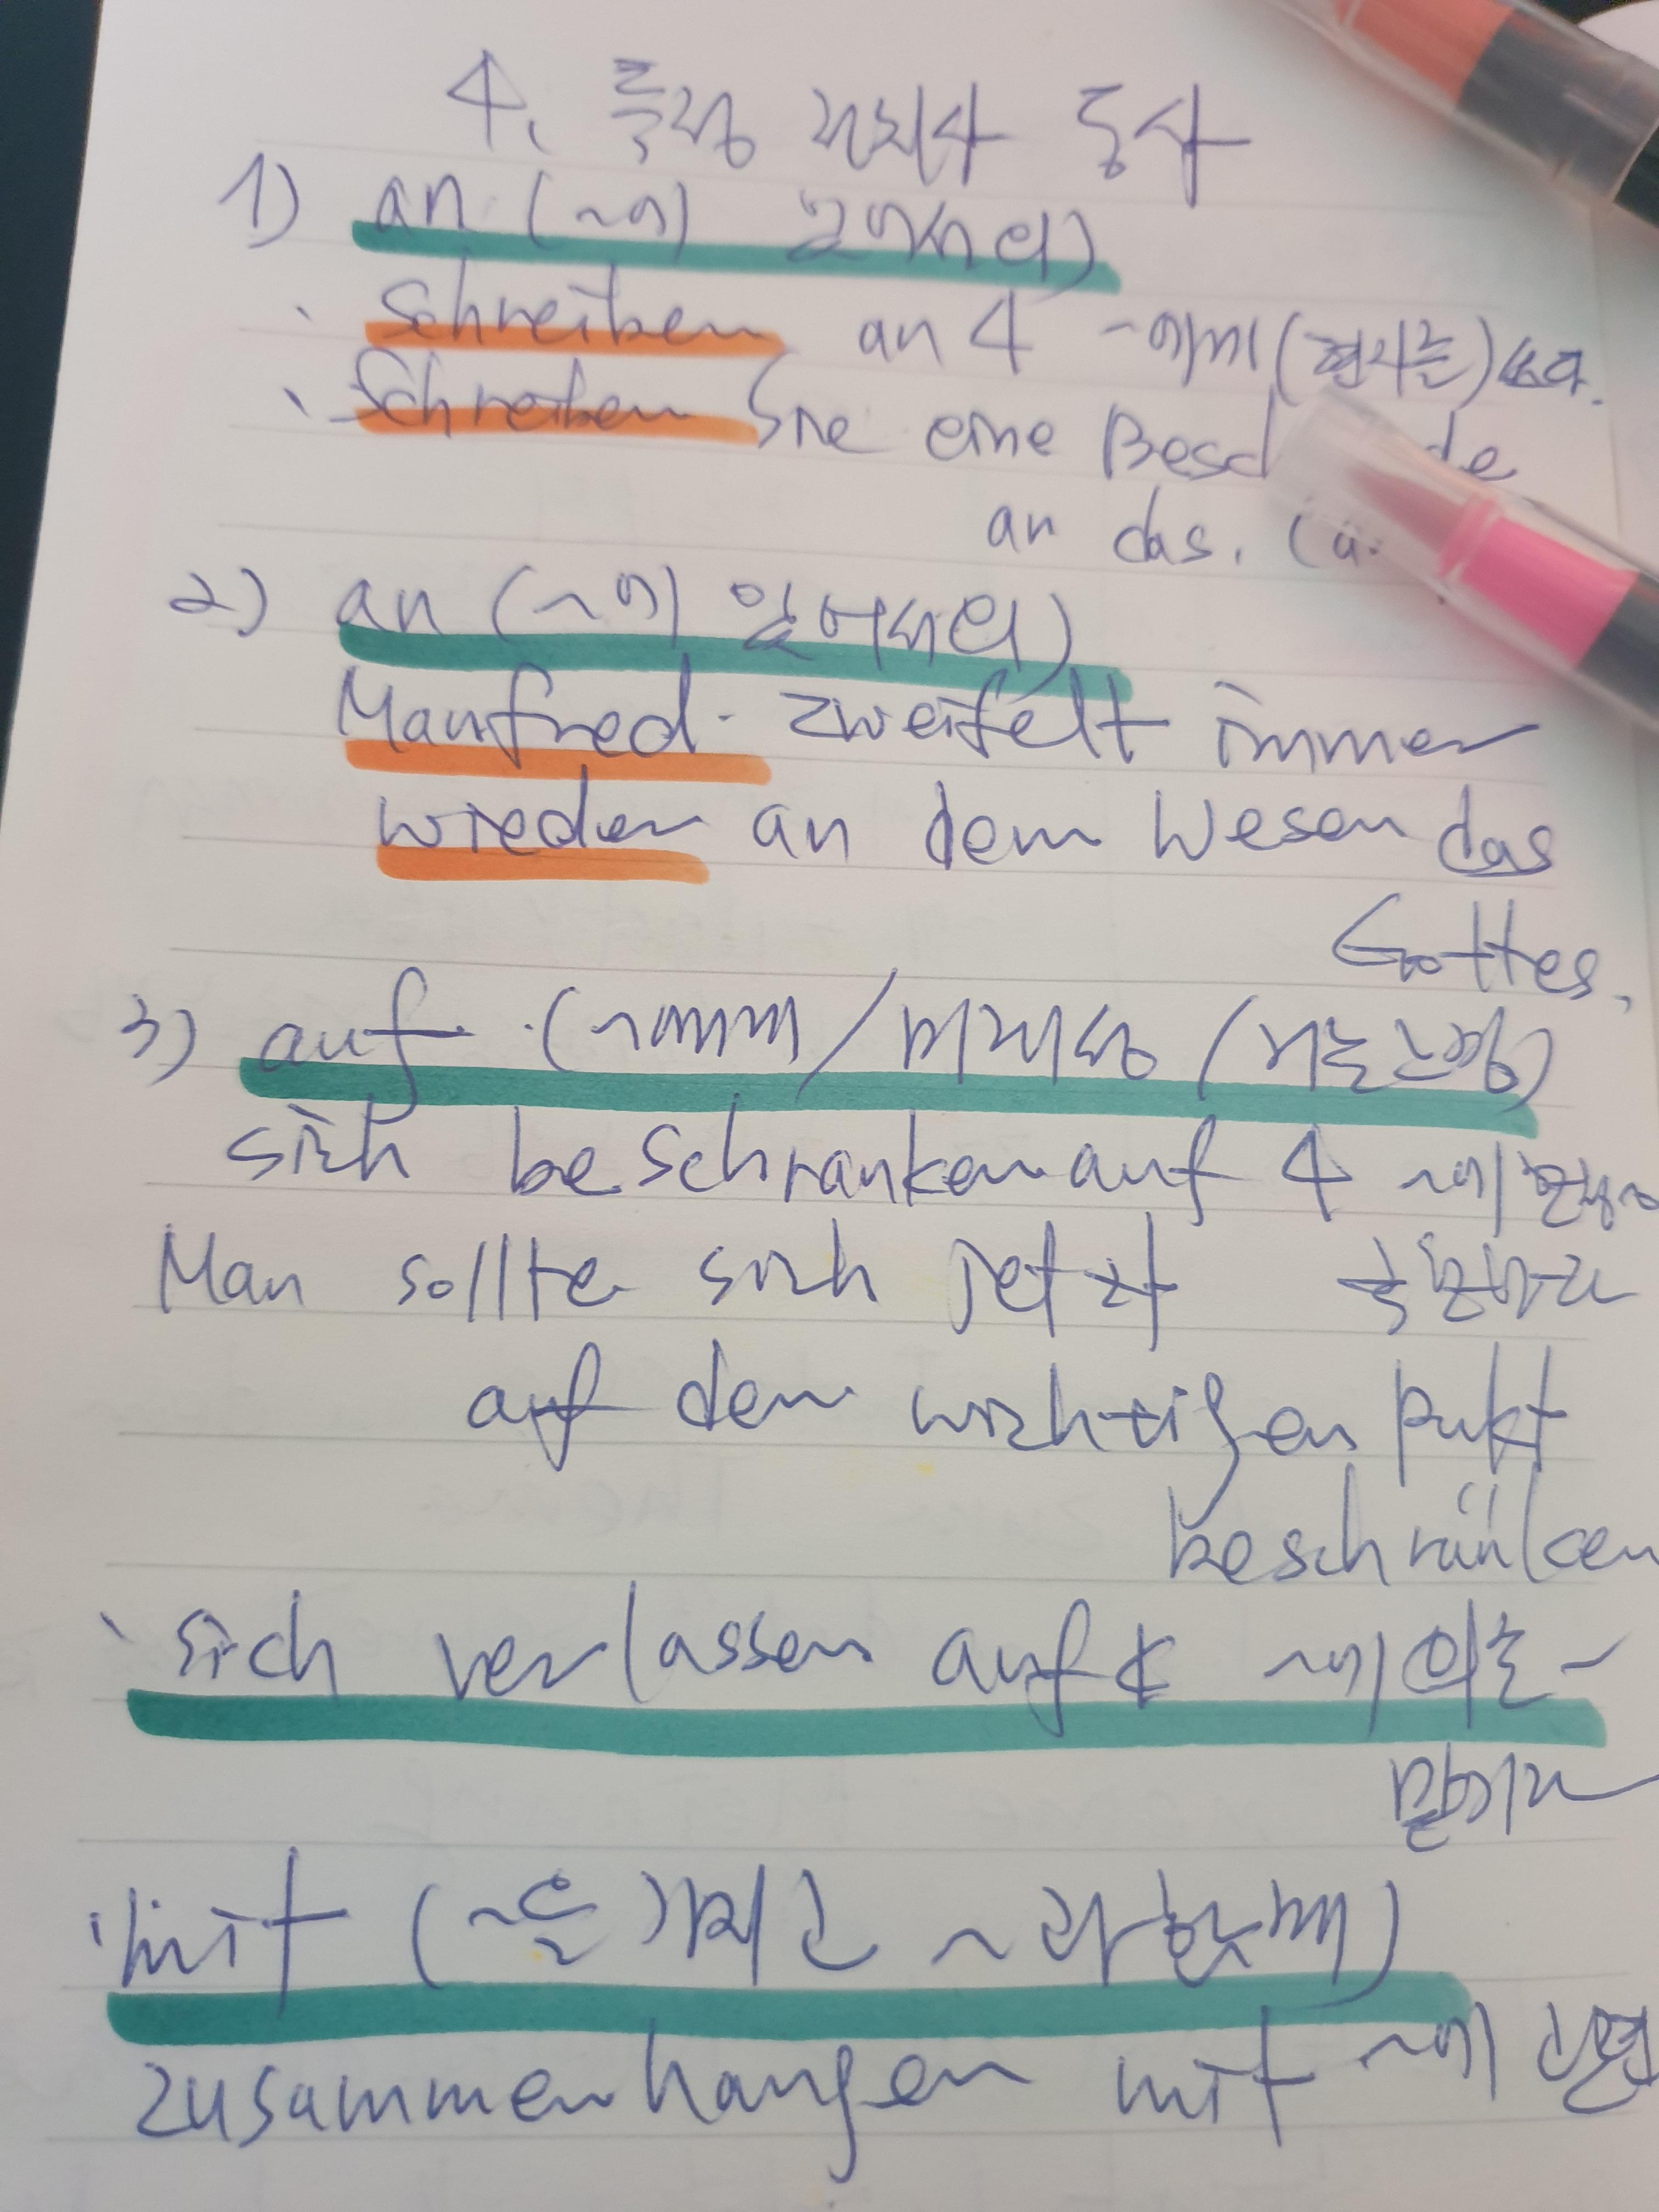 4. 특정 전치사 동사
1) an (~에 있어서의)
schreiben an 4 ~에게 (편지를) 쓰다.
Schreiben Sie eine
an das.
2) an (~에 있어서의)
Manfred zweifelt immer
wieder an dem Wesen das
Gottes.
3) auf (~에
sich beschranken auf 4 ~에
Man sollte sich jetzt 국한하다
auf den wichtigen Pukt
beschränken
sich verlassen auf 4 ~에 의존
맡기다
mit (~을 가지고
zusammenhangen mit ~에 관련